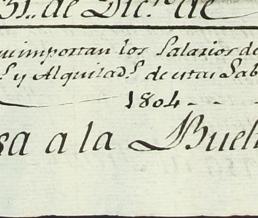 31,, de Dic.e de
importan los Salarios de
s y Alquilad.s de estas Lab
1804 - -
sa a la Buel